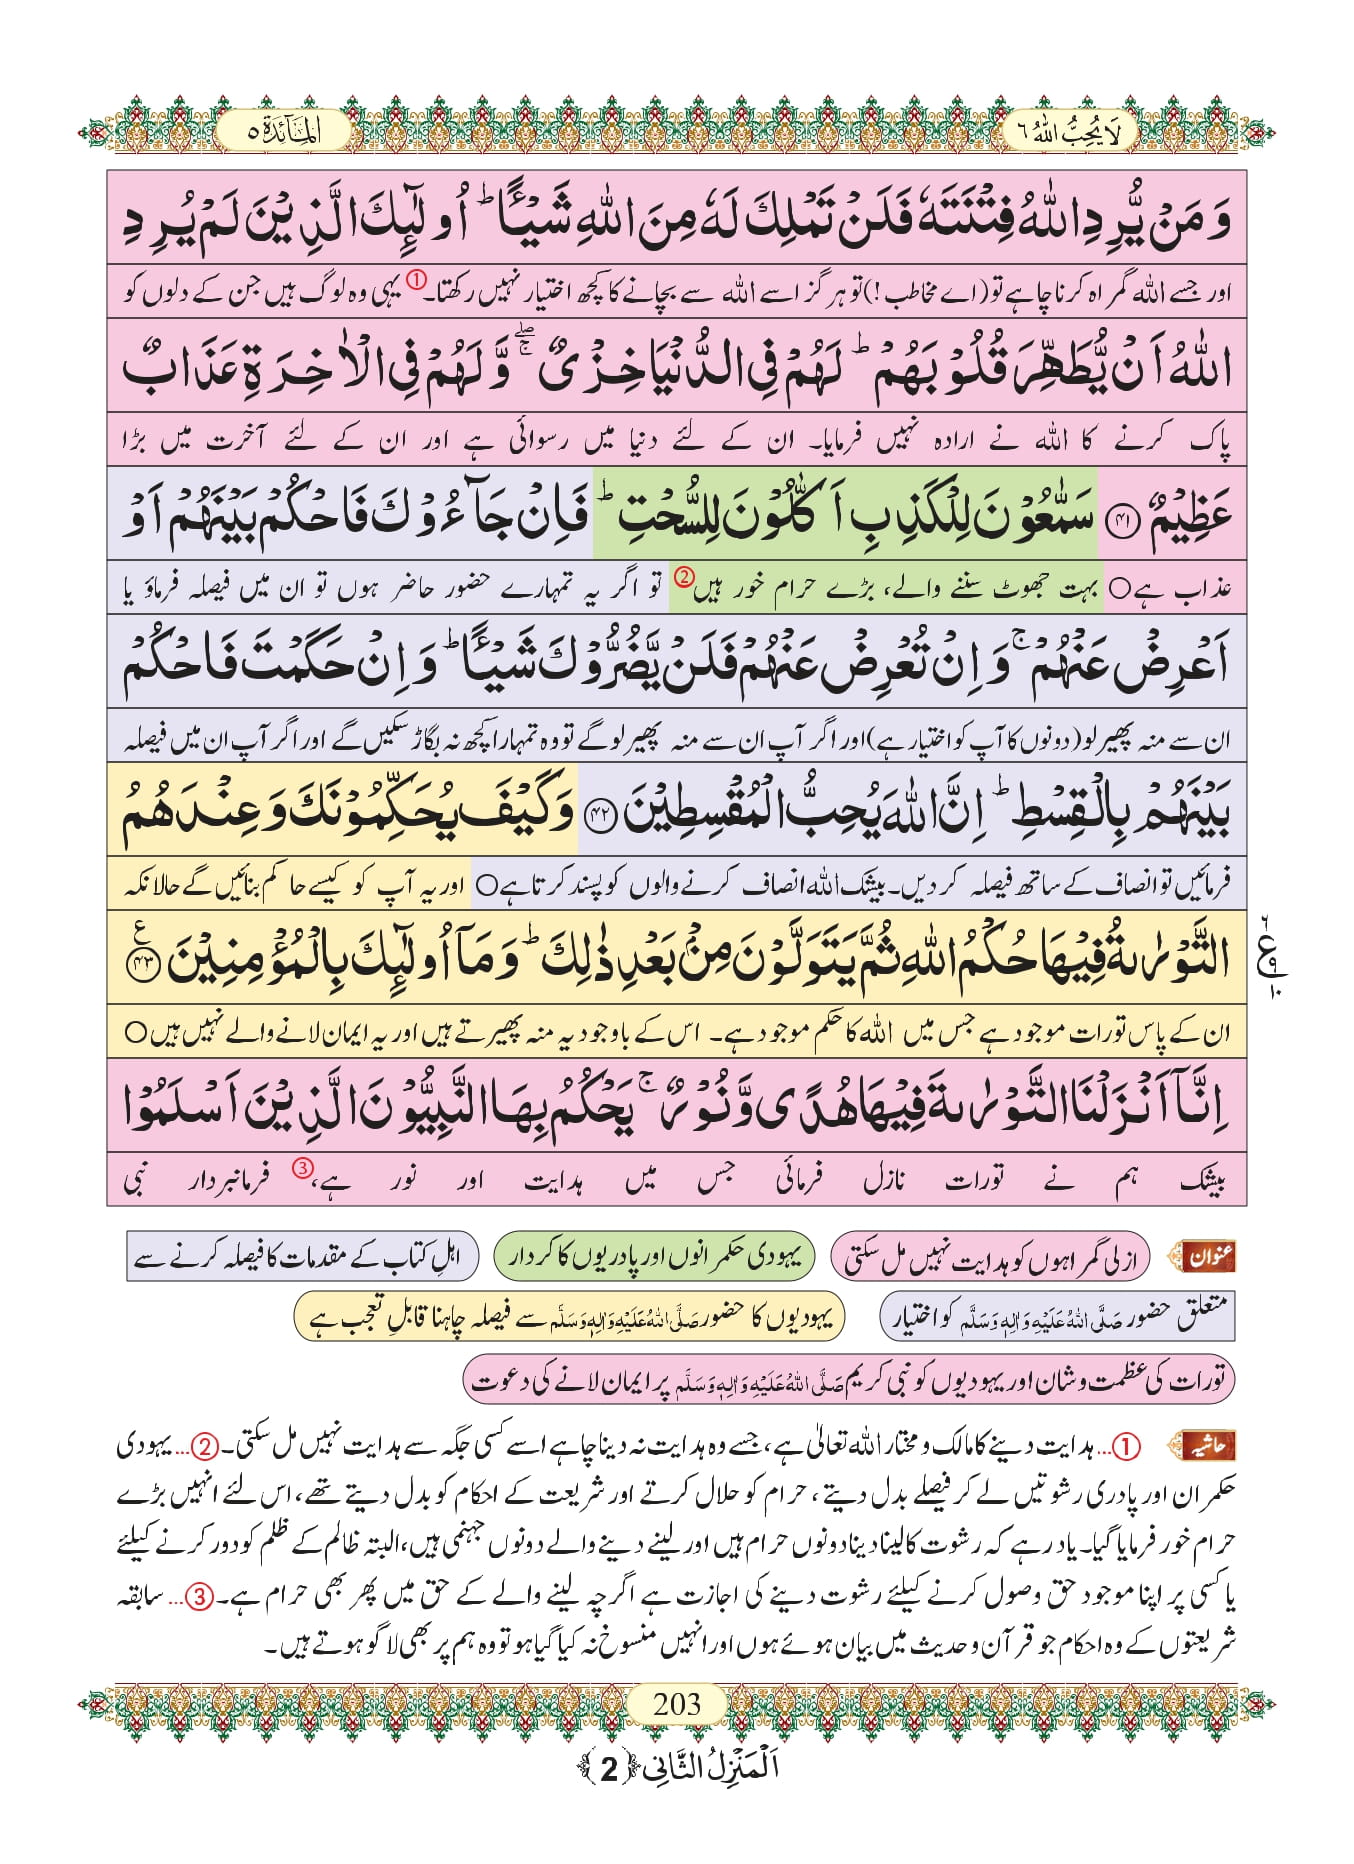 لَا يُحِبُّ اللّٰهُ ٦
اَلْمَآئِدَة ٥
وَ مَنْ يُّرِدِ اللّٰهُ فِتْنَتَهٗ فَلَنْ تَمْلِكَ لَهٗ مِنَ اللّٰهِ شَيْـًٔاؕ اُولٰٓىِٕكَ الَّذِيْنَ لَمْ يُرِدِ
اور جسے اللہ گمراہ کرنا چاہے تو (اے مخاطب!) تو ہرگز اسے اللہ سے بچانے کا کچھ اختیار نہیں رکھتا۔① یہی وہ لوگ ہیں جن کے دلوں کو
اللّٰهُ اَنْ يُّطَهِّرَ قُلُوْبَهُمْؕ لَهُمْ فِي الدُّنْيَا خِزْيٌۚۖ وَّ لَهُمْ فِي الْاٰخِرَةِ عَذَابٌ
پاک کرنے کا اللہ نے ارادہ نہیں فرمایا۔ ان کے لئے دنیا میں رسوائی ہے اور ان کے لئے آخرت میں بڑا
عَظِيْمٌ ﴿۴۱﴾ سَمّٰعُوْنَ لِلْكَذِبِ اَكّٰلُوْنَ لِلسُّحْتِؕ فَاِنْ جَآءُوْكَ فَاحْكُمْ بَيْنَهُمْ اَوْ
عذاب ہے○ بہت جھوٹ سننے والے، بڑے حرام خور ہیں② تو اگر یہ تمہارے حضور حاضر ہوں تو ان میں فیصلہ فرماؤ یا
اَعْرِضْ عَنْهُمْۚ وَ اِنْ تُعْرِضْ عَنْهُمْ فَلَنْ يَّضُرُّوْكَ شَيْـًٔاؕ وَ اِنْ حَكَمْتَ فَاحْكُمْ
ان سے منہ پھیر لو (دونوں کا آپ کو اختیار ہے) اور اگر آپ ان سے منہ پھیر لو گے تو وہ تمہارا کچھ نہ بگاڑ سکیں گے اور اگر آپ ان میں فیصلہ
بَيْنَهُمْ بِالْقِسْطِؕ اِنَّ اللّٰهَ يُحِبُّ الْمُقْسِطِيْنَ ﴿۴۲﴾ وَ كَيْفَ يُحَكِّمُوْنَكَ وَ عِنْدَهُمُ
فرمائیں تو انصاف کے ساتھ فیصلہ کر دیں۔ بیشک اللہ انصاف کرنے والوں کو پسند کرتا ہے○ اور یہ آپ کو کیسے حاکم بنائیں گے حالانکہ
التَّوْرٰىةُ فِيْهَا حُكْمُ اللّٰهِ ثُمَّ يَتَوَلَّوْنَ مِنْۢ بَعْدِ ذٰلِكَؕ وَ مَاۤ اُولٰٓىِٕكَ بِالْمُؤْمِنِيْنَ ﴿۴۳﴾ ع
٦
ع ٩
١٠
ان کے پاس تورات موجود ہے جس میں اللہ کا حکم موجود ہے۔ اس کے باوجود یہ منہ پھیرتے ہیں اور یہ ایمان لانے والے نہیں ہیں○
اِنَّاۤ اَنْزَلْنَا التَّوْرٰىةَ فِيْهَا هُدًى وَّ نُوْرٌۚ يَحْكُمُ بِهَا النَّبِيُّوْنَ الَّذِيْنَ اَسْلَمُوْا
بیشک ہم نے تورات نازل فرمائی جس میں ہدایت اور نور ہے،③ فرمانبردار نبی
عنوان ازلی گمراہوں کو ہدایت نہیں مل سکتی یہودی حکمرانوں اور پادریوں کا کردار اہلِ کتاب کے مقدمات کا فیصلہ کرنے سے
متعلق حضور صَلَّی اللّٰہُ عَلَیْہِ وَاٰلِہٖ وَسَلَّم کو اختیار یہودیوں کا حضور صَلَّی اللّٰہُ عَلَیْہِ وَاٰلِہٖ وَسَلَّم سے فیصلہ چاہنا قابلِ تعجب ہے
تورات کی عظمت و شان اور یہودیوں کو نبی کریم صَلَّی اللّٰہُ عَلَیْہِ وَاٰلِہٖ وَسَلَّم پر ایمان لانے کی دعوت
حاشیہ ①... ہدایت دینے کا مالک و مختار اللہ تعالیٰ ہے، جسے وہ ہدایت نہ دینا چاہے اسے کسی جگہ سے ہدایت نہیں مل سکتی۔ ②... یہودی
حکمران اور پادری رشوتیں لے کر فیصلے بدل دیتے، حرام کو حلال کرتے اور شریعت کے احکام کو بدل دیتے تھے، اس لئے انہیں بڑے
حرام خور فرمایا گیا۔ یاد رہے کہ رشوت کا لینا دینا دونوں حرام ہیں اور لینے دینے والے دونوں جہنمی ہیں، البتہ ظالم کے ظلم کو دور کرنے کیلئے
یا کسی پر اپنا موجود حق وصول کرنے کیلئے رشوت دینے کی اجازت ہے اگرچہ لینے والے کے حق میں پھر بھی حرام ہے۔ ③... سابقہ
شریعتوں کے وہ احکام جو قرآن و حدیث میں بیان ہوئے ہوں اور انہیں منسوخ نہ کیا گیا ہو تو وہ ہم پر بھی لاگو ہوتے ہیں۔
203
اَلْمَنْزِلُ الثَّانِی ﴿2﴾